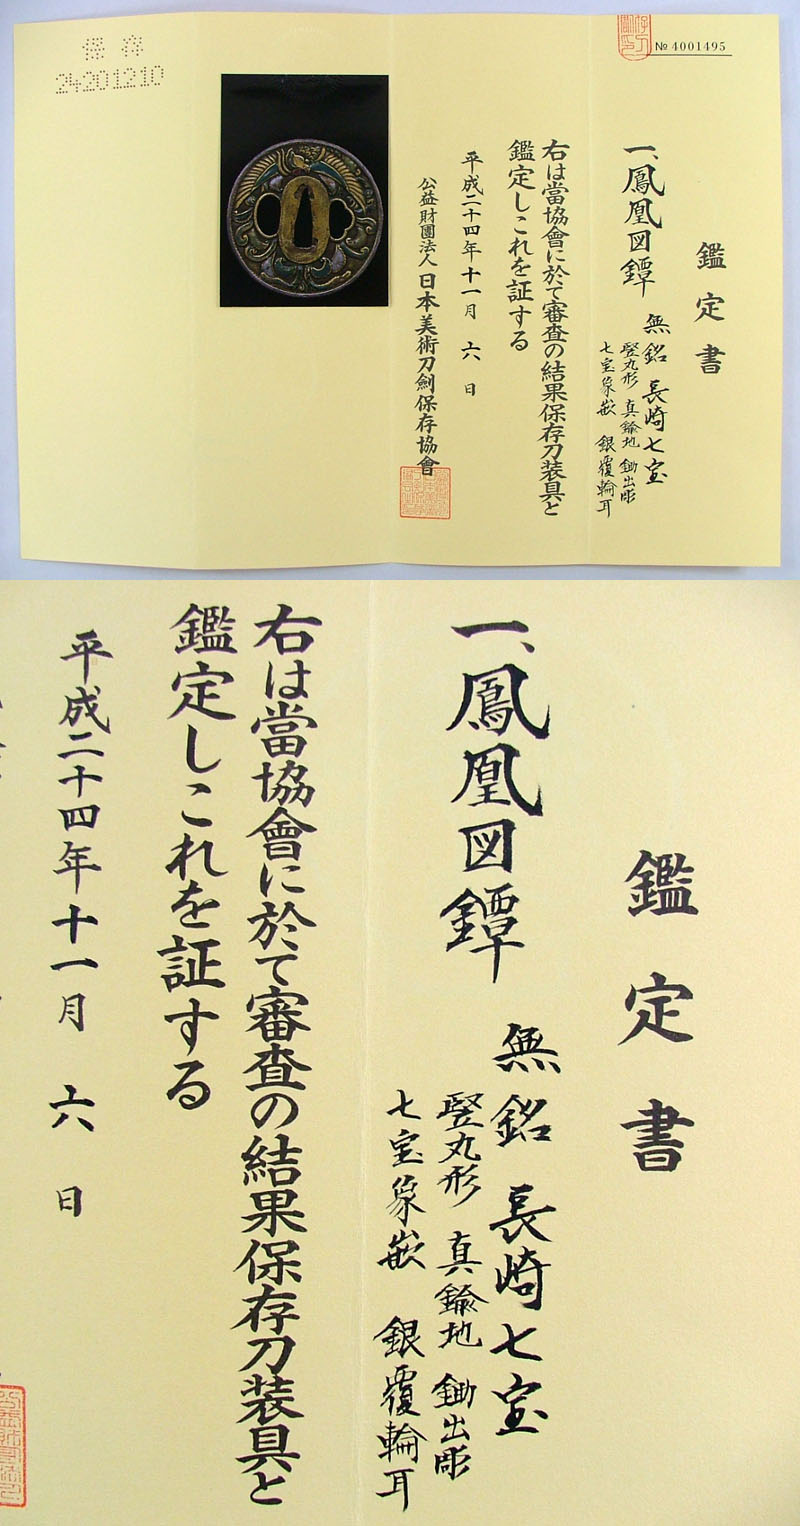 № 4001495
鑑定書
一、鳳凰図鐔
無銘 長崎七宝
竪丸形 真鍮地 鋤出彫
七宝象嵌 銀覆輪耳
右は當協會に於て審査の結果保存刀装具と
鑑定しこれを証する
平成二十四年十一月 六 日
公益財團法人 日本美術刀劍保存協會
保存
24201210
鑑定書
一、鳳凰図鐔
無銘 長崎七宝
竪丸形 真鍮地 鋤出彫
七宝象嵌 銀覆輪耳
右は當協會に於て審査の結果保存刀装具と
鑑定しこれを証する
平成二十四年十一月 六 日